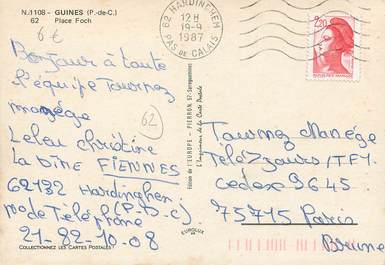 N.1108 - GUINES (P.-de-C.)
62 Place Foch
6 €
Bonjour à toute
l'équipe Tournez
manège
Leleu Christine
La Dine FIENNES
62132 Hardinghen
(P-D-C)
mode Téléphone
21-82-10-08
COLLECTIONNEZ LES CARTES POSTALES
62
Edition de l'EUROPE - PIERRON 57-Sarreguemines
L'Imprimeur de la Carte Postale
EUROLUX
62 HARDINGHEN
12 H
19-9
1987
PAS DE CALAIS
2,20
Tournez Manège
Télé 7 jours/TF1.
Cedex 9645
75715 Paris
Brune